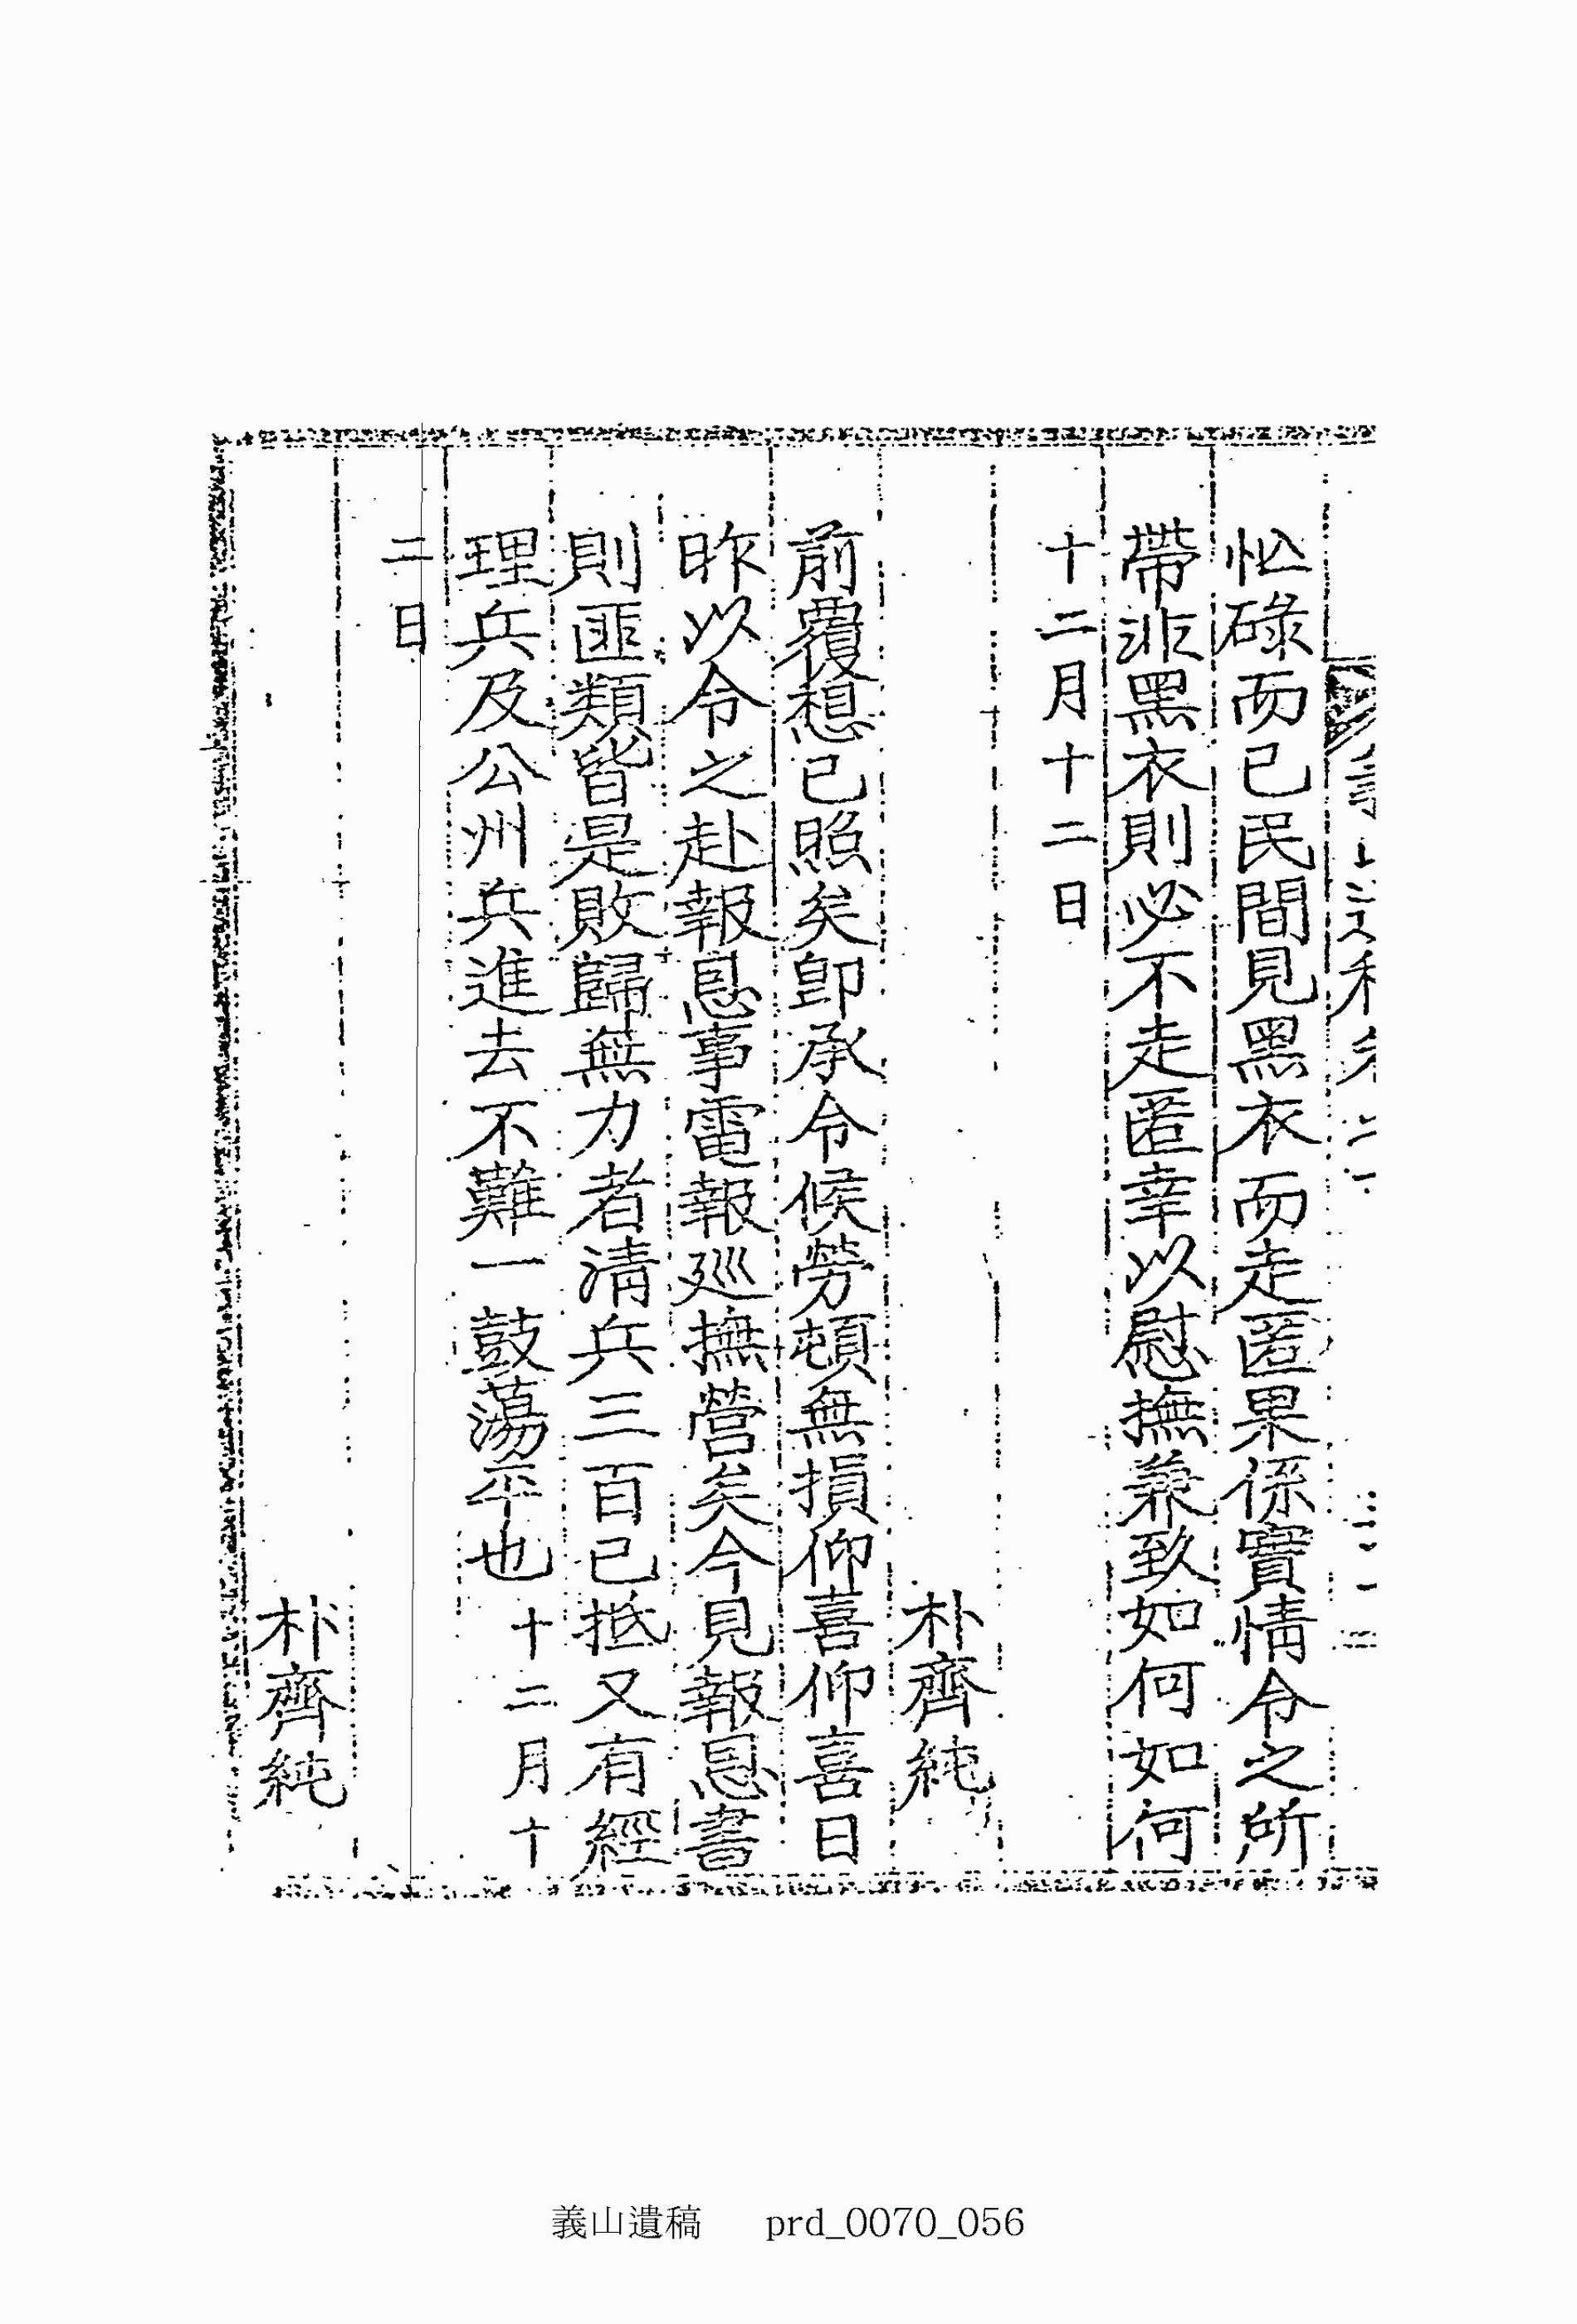 忙碌而已民間見黑衣而走匿果係實情令之所
帶非黑衣則必不走匿幸以慰撫兼致如何如何
十二月十二日
朴齊純
前覆想已照矣卽承令候勞頓無損仰喜仰喜日
昨以令之赴報恩事電報廵撫營矣今見報恩書
則匪類皆是敗歸無力者淸兵三百已抵又有經
理兵及公州兵進去不難一鼓蕩平也十二月十
二日
朴齊純
義山遺稿 prd_0070_056